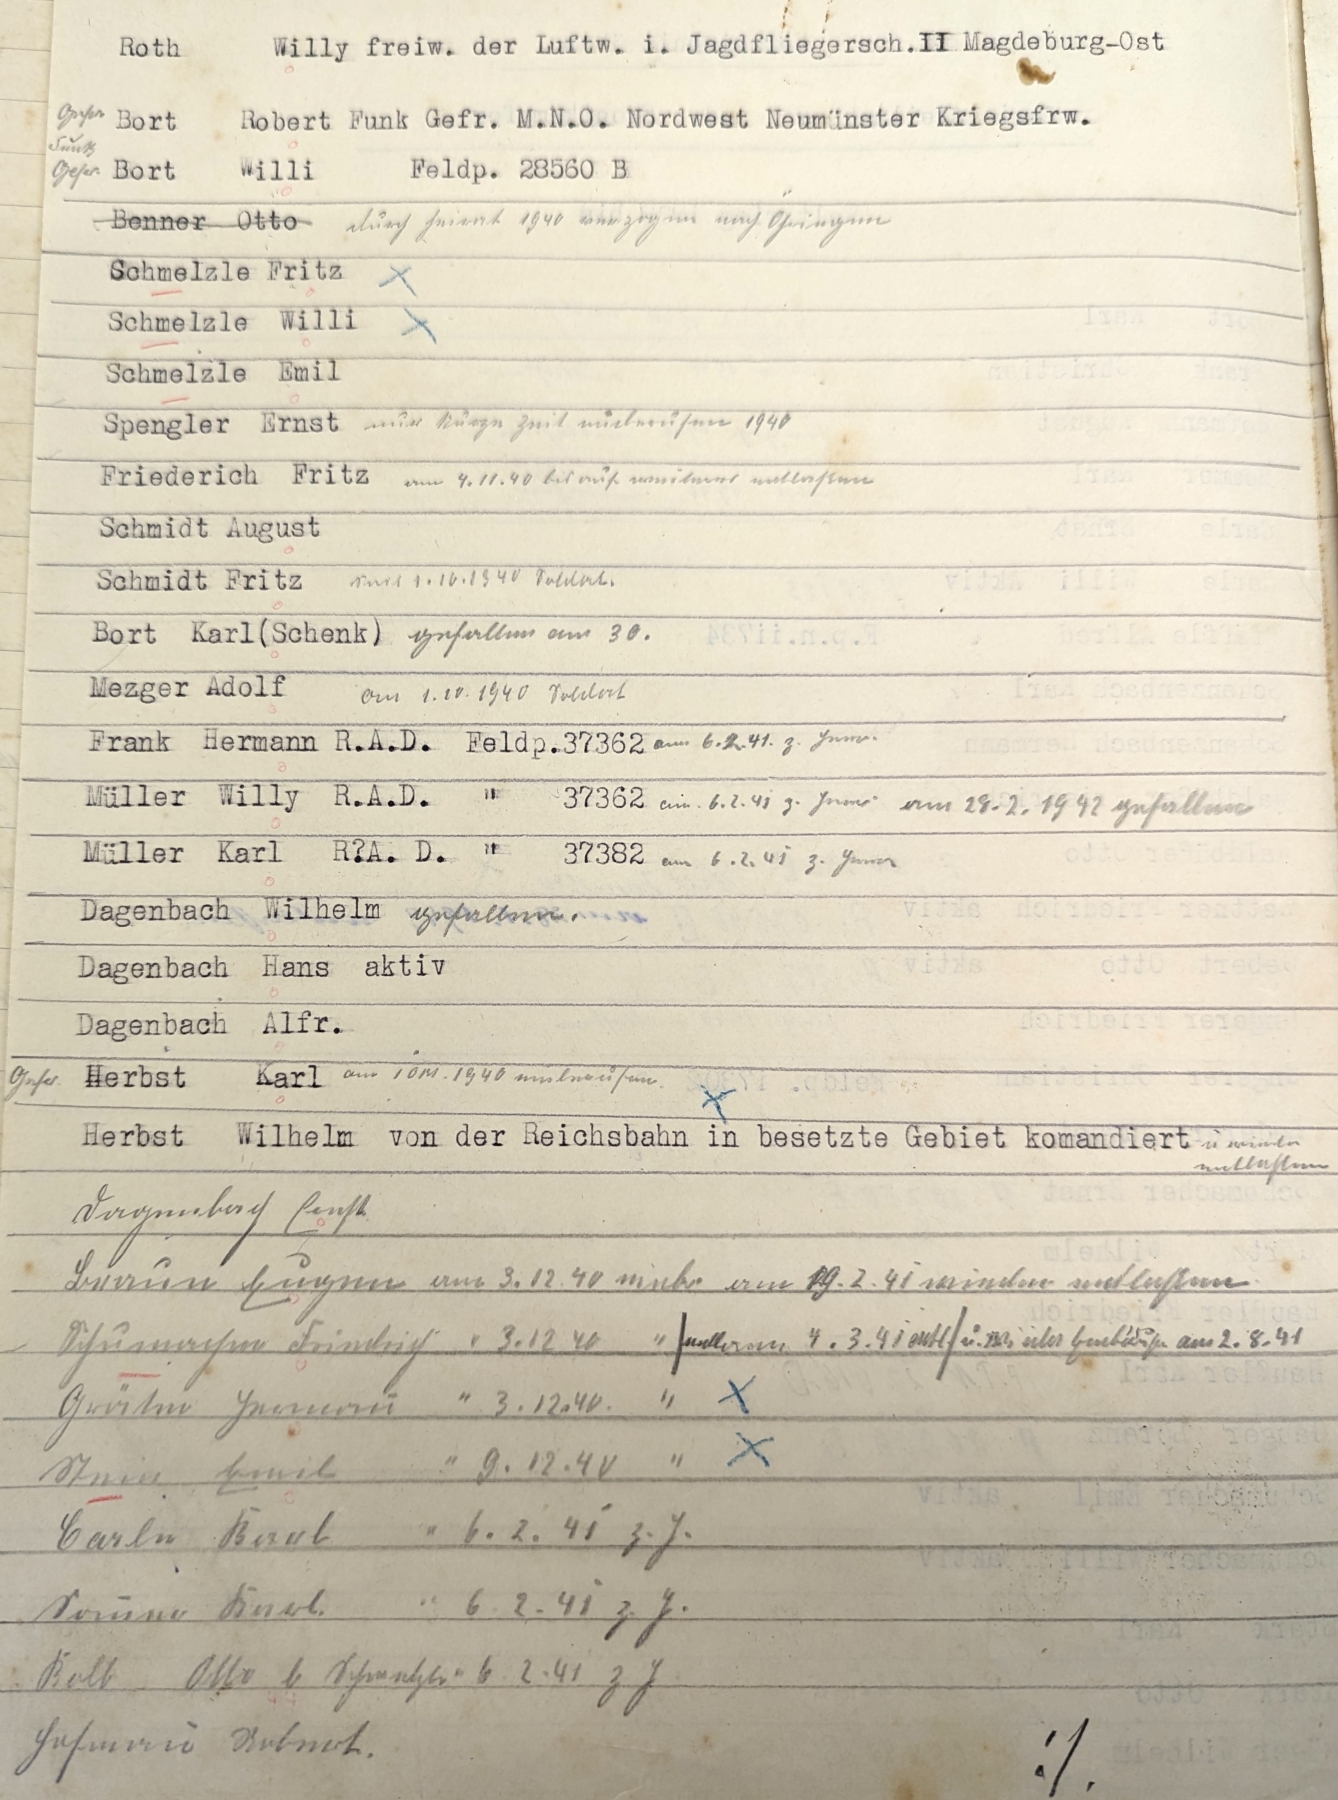 Roth Willy freiw. der Luftw. i. Jagdfliegersch.II Magdeburg-Ost
Gefr. Bort Robert Funk Gefr. M.N.O. Nordwest Neumünster Kriegsfrw.
Funk
Gefr. Bort Willi Feldp. 28560 B
Benner Otto durch Heirat 1940 verzogen nach Öhringen
Schmelzle Fritz
Schmelzle Willi
Schmelzle Emil
Spengler Ernst nur kurze Zeit einberufen 1940
Friederich Fritz am 4.11.40 bis auf weiteres entlassen
Schmidt August
Schmidt Fritz seit 1.10.1940 Soldat.
Bort Karl(Schenk) gefallen am 30.
Mezger Adolf am 1.10.1940 Soldat
Frank Hermann R.A.D. Feldp.37362 am 6.2.41. z. Heer.
Müller Willy R.A.D. " 37362 am. 6.2.41 z. Heer am 28.2.1942 gefallen
Müller Karl R?A. D. " 37382 am 6.2.41 z. Heer
Dagenbach Wilhelm gefallen.
Dagenbach Hans aktiv
Dagenbach Alfr.
Gefr. Herbst Karl am 1940 einberufen.
Herbst Wilhelm von der Reichsbahn in besetzte Gebiet komandiert u. wieder
entlassen
Dagenbach Ernst
Braun Eugen am 3.12.40 einbr am 19.2.41 wieder entlassen
Schumacher Friedrich " 3.12.40 " 4.3.41 entl u. am 2.8.41
Gräter Hermann " 3.12.40. "
Stein Emil " 9.12.40 "
Carle Karl " 6.2.41 z.H.
Karl. " 6.2.41 z.H.
Kolb Otto b " 6.2.41 z H
Hofmann Robert.
:/.